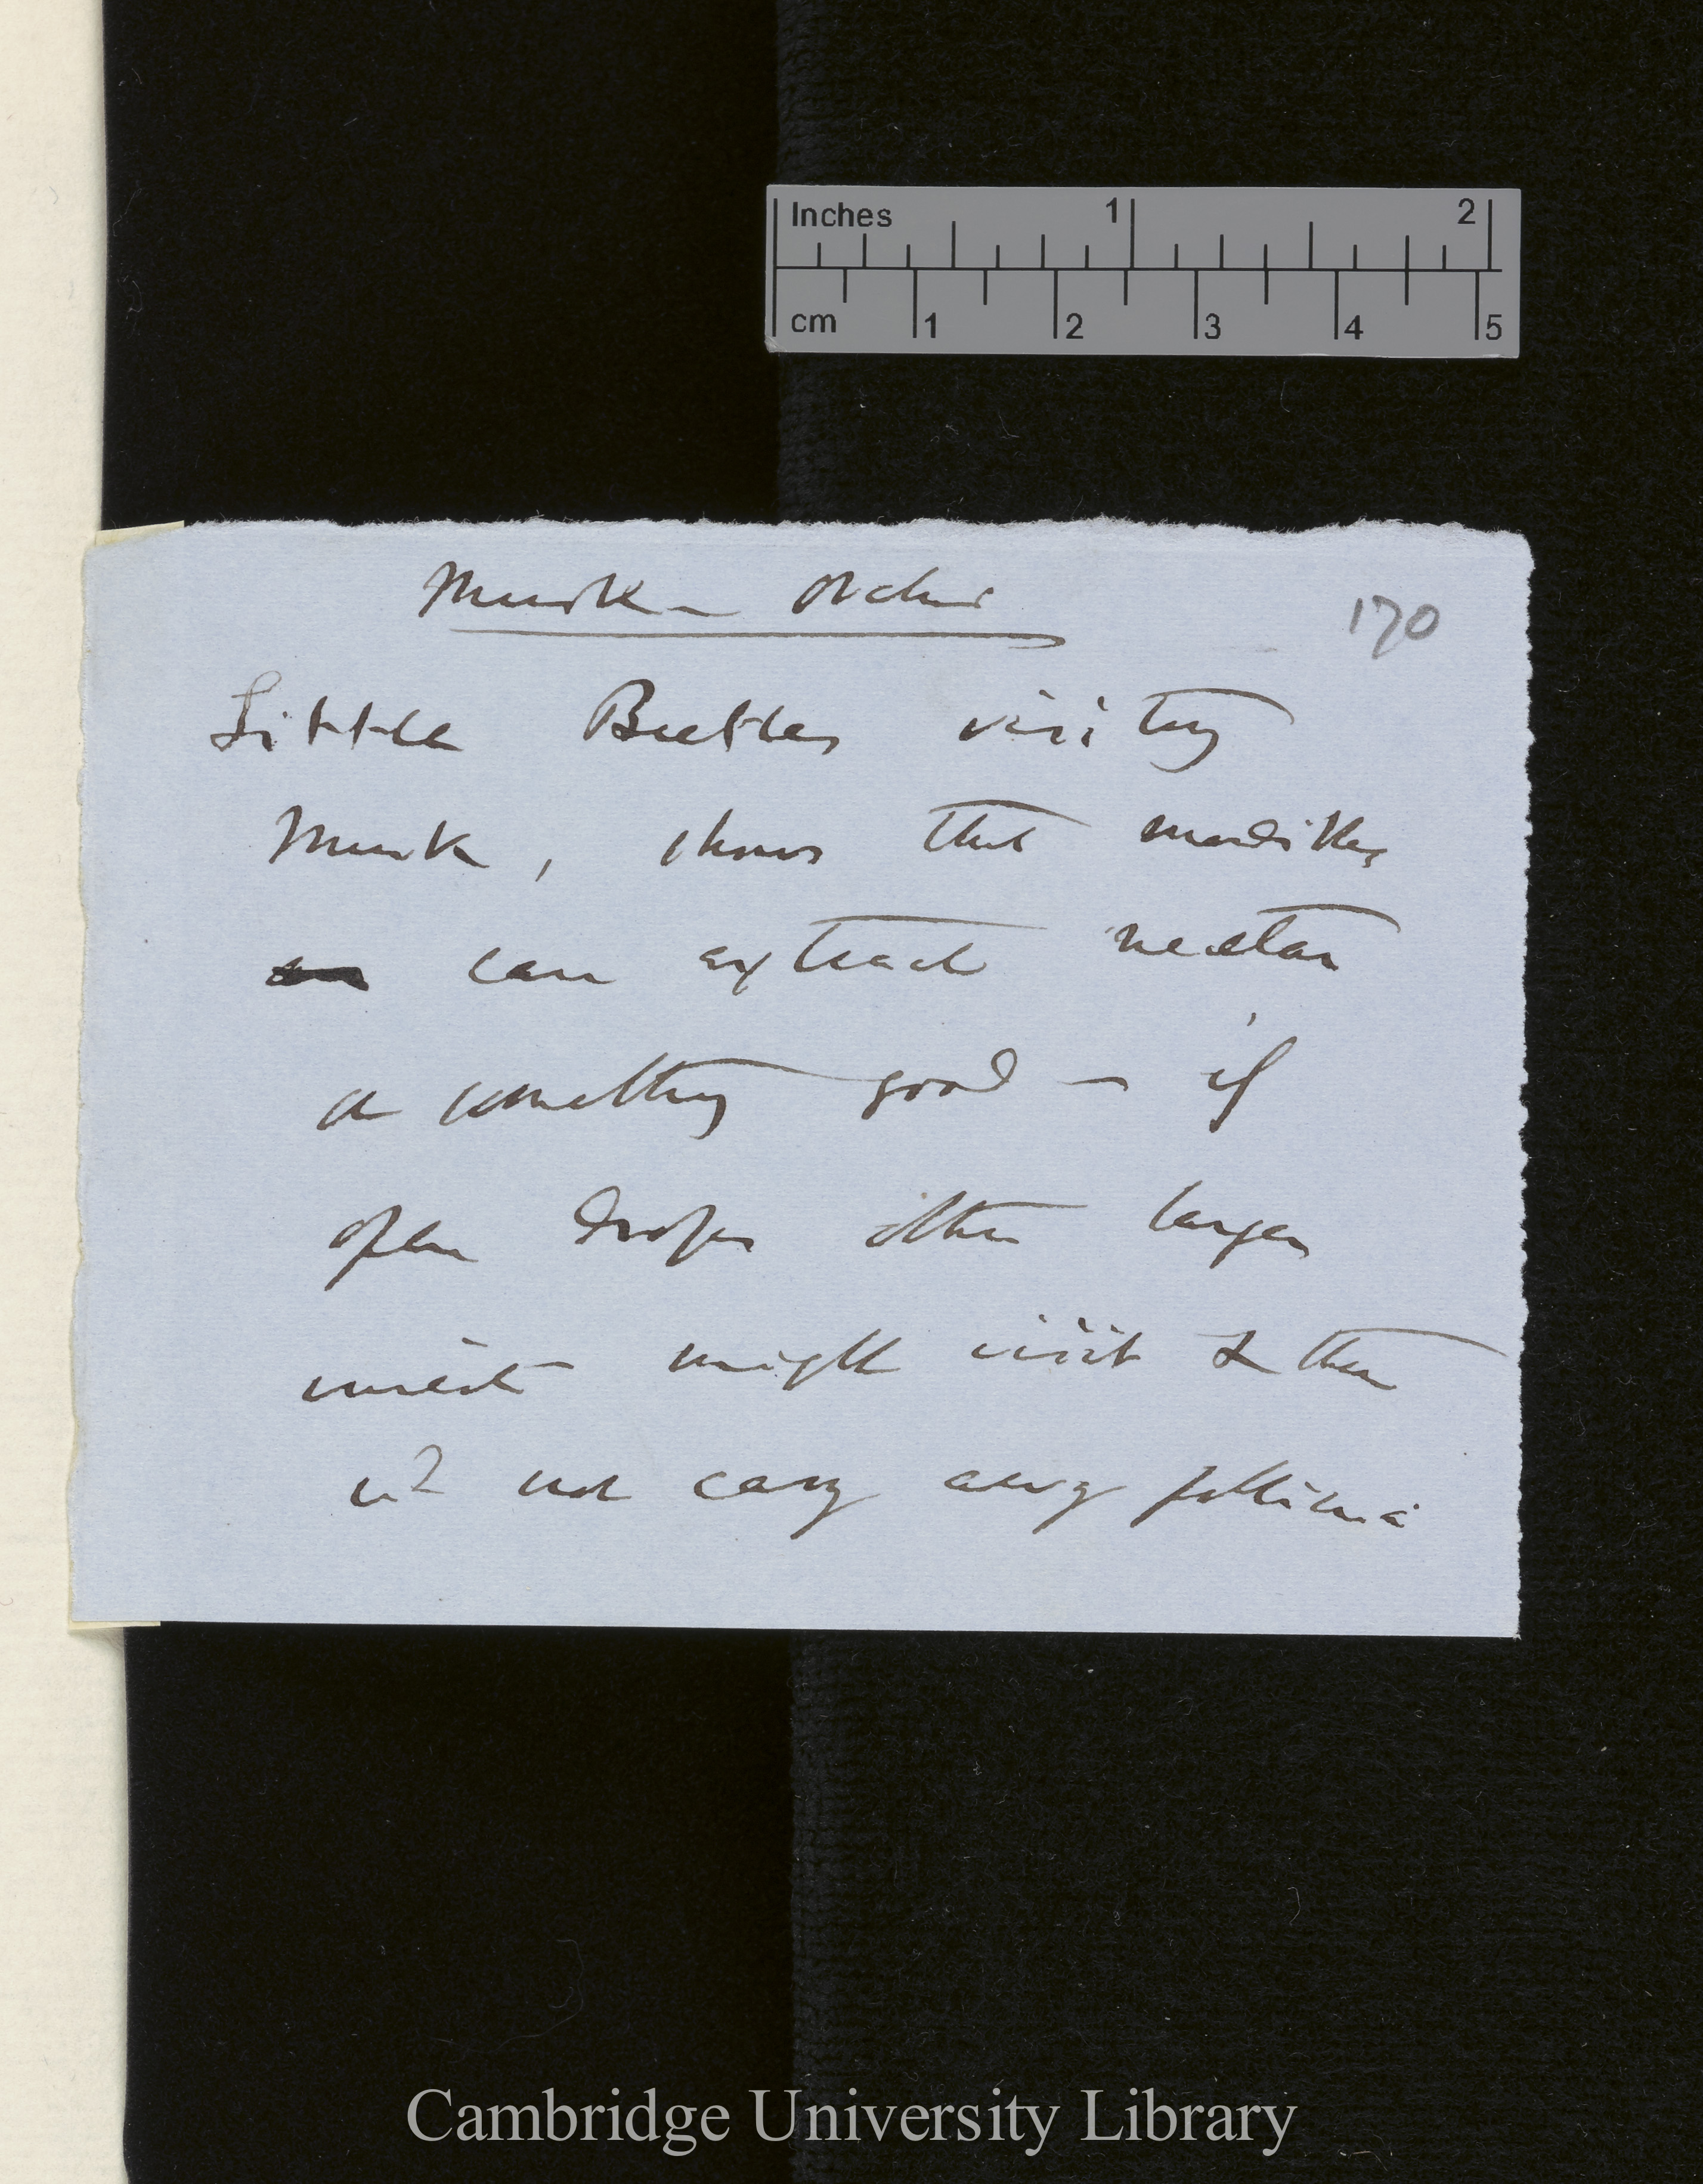 Inches 1 2
cm 1 2 3 4 5
Musk – Orchis
170
Little Beetles visiting
Musk, shows that mandibles
can extract nectar
or something good – if
open drops other larger
insects might visit & then
wd not carry away pollinia
Cambridge University Library